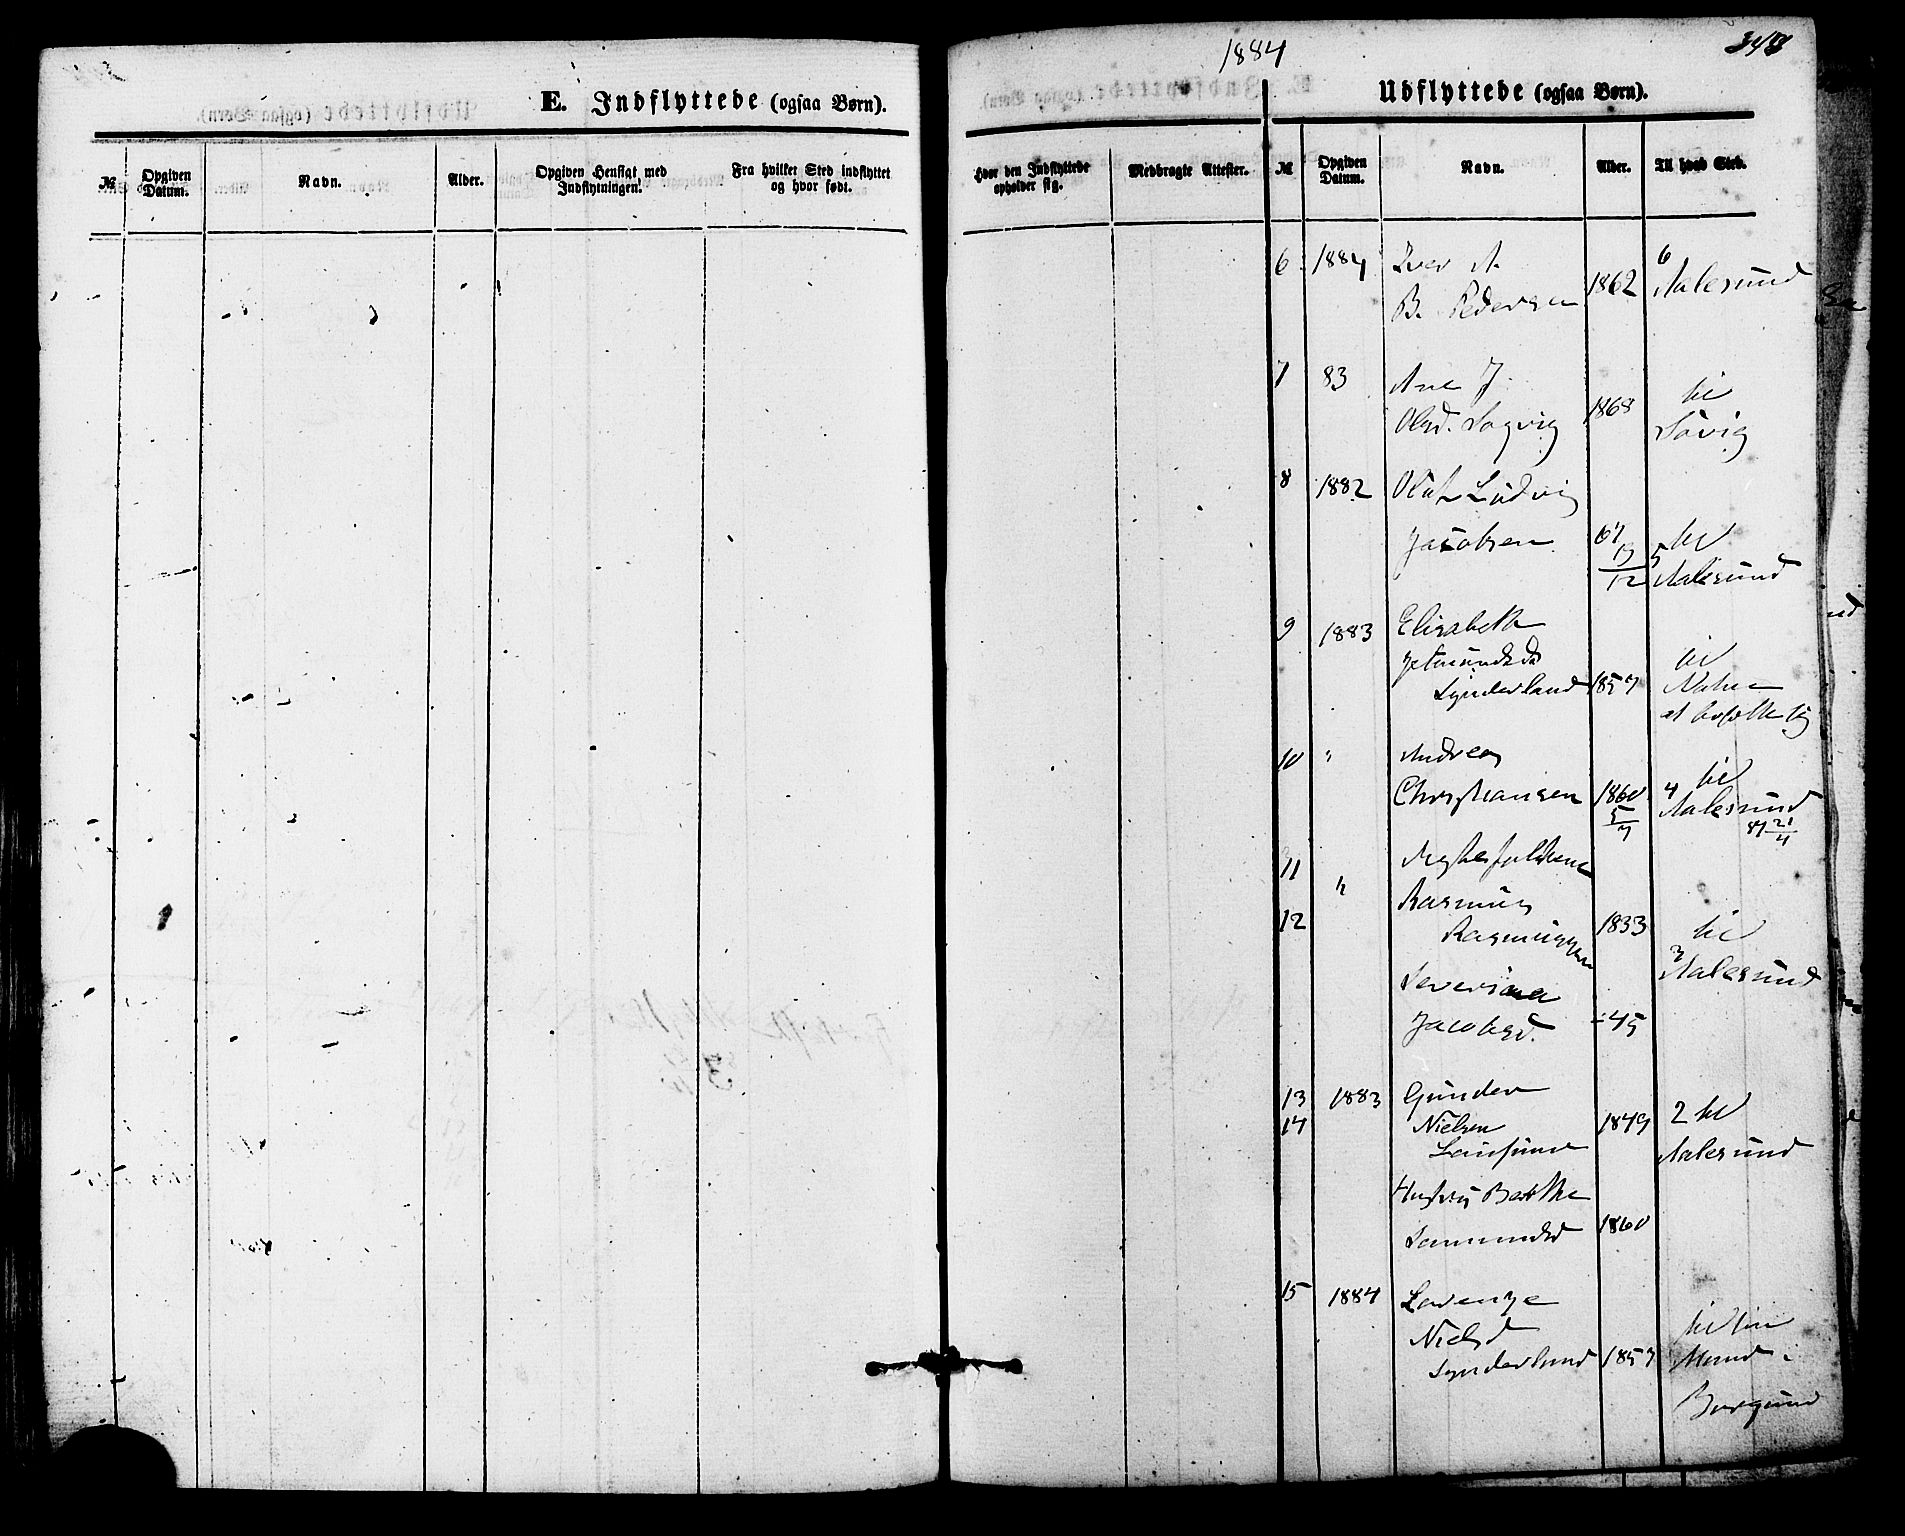 1884
348
E. Indflyttede (ogsaa Børn).
Udflyttede (ogsaa Børn).
№
Opgiven Datum.
Navn.
Alder.
Opgiven Hensigt med Indflytningen.
Fra hvilket Sted indflyttet og hvor født.
Hvor den Indflyttede opholder sig.
Medbragte Attester.
№
Opgiven Datum.
Navn.
Alder.
Til hvad Sted.
6 1884 Iver A.
B. Pedersen 1862 6 Aalesund
7 83 Ane J.
Olsd. Sogvig 1868 til Søvig
8 1882 Olaf Ludvig
Jacobsen 67 til
12 5 Aalesund
9 1883 Elisabeth
til
Synderland 1857
at
10 " Andreas
Christiansen 1860 4 til Aalesund
5/7 87 21/4
11 " Ægtefolkene
12 Rasmus
Rasmussen 1833 til
3 Aalesund
Severine
Jacobsd. -45
13 1883 Gunder
14 Nielsen 1849 2 til
Aalesund
Hustru Berthe
1860
15 1884 Lorenze
Nielsd
Synderland 1857 til sin
Mand i
Borgund